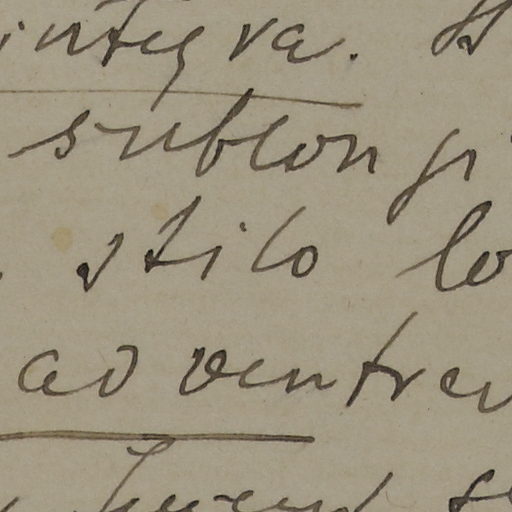 integra.
sublongi
stilo lo
ad ventrem